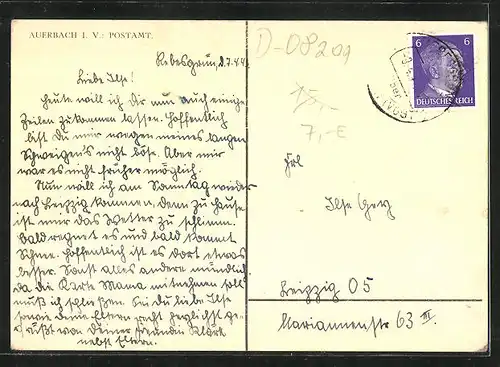 AUERBACH I. V.: POSTAMT.
D-08209
Rebesgrün, 2.7.44
Liebe Ilse!
Heute will ich Dir nun auch einige
Zeilen zukommen lassen. Hoffentlich
bist du mir wegen meines langen
Schweigens nicht böse. Aber mir
war es nicht früher möglich.
Nun will ich am Sonntag wieder
nach Leipzig kommen, denn zu Hause
ist mir das Wetter zu schlimm.
Bald regnet es und bald kommt
Sonne. Hoffentlich ist es dort etwas
besser. Sonst alles andere mündlich
da die Karte Mama mitnehmen soll
muß ich schließen. Sei du liebe Ilse
sowie deine Eltern recht herzlichst ge-
grüßt von Deiner Freundin
nebst Eltern.
6 6
DEUTSCHES REICH
15,-
7,-E
Frl
Ilse
Leipzig O5
Mariannenstr 63 III.